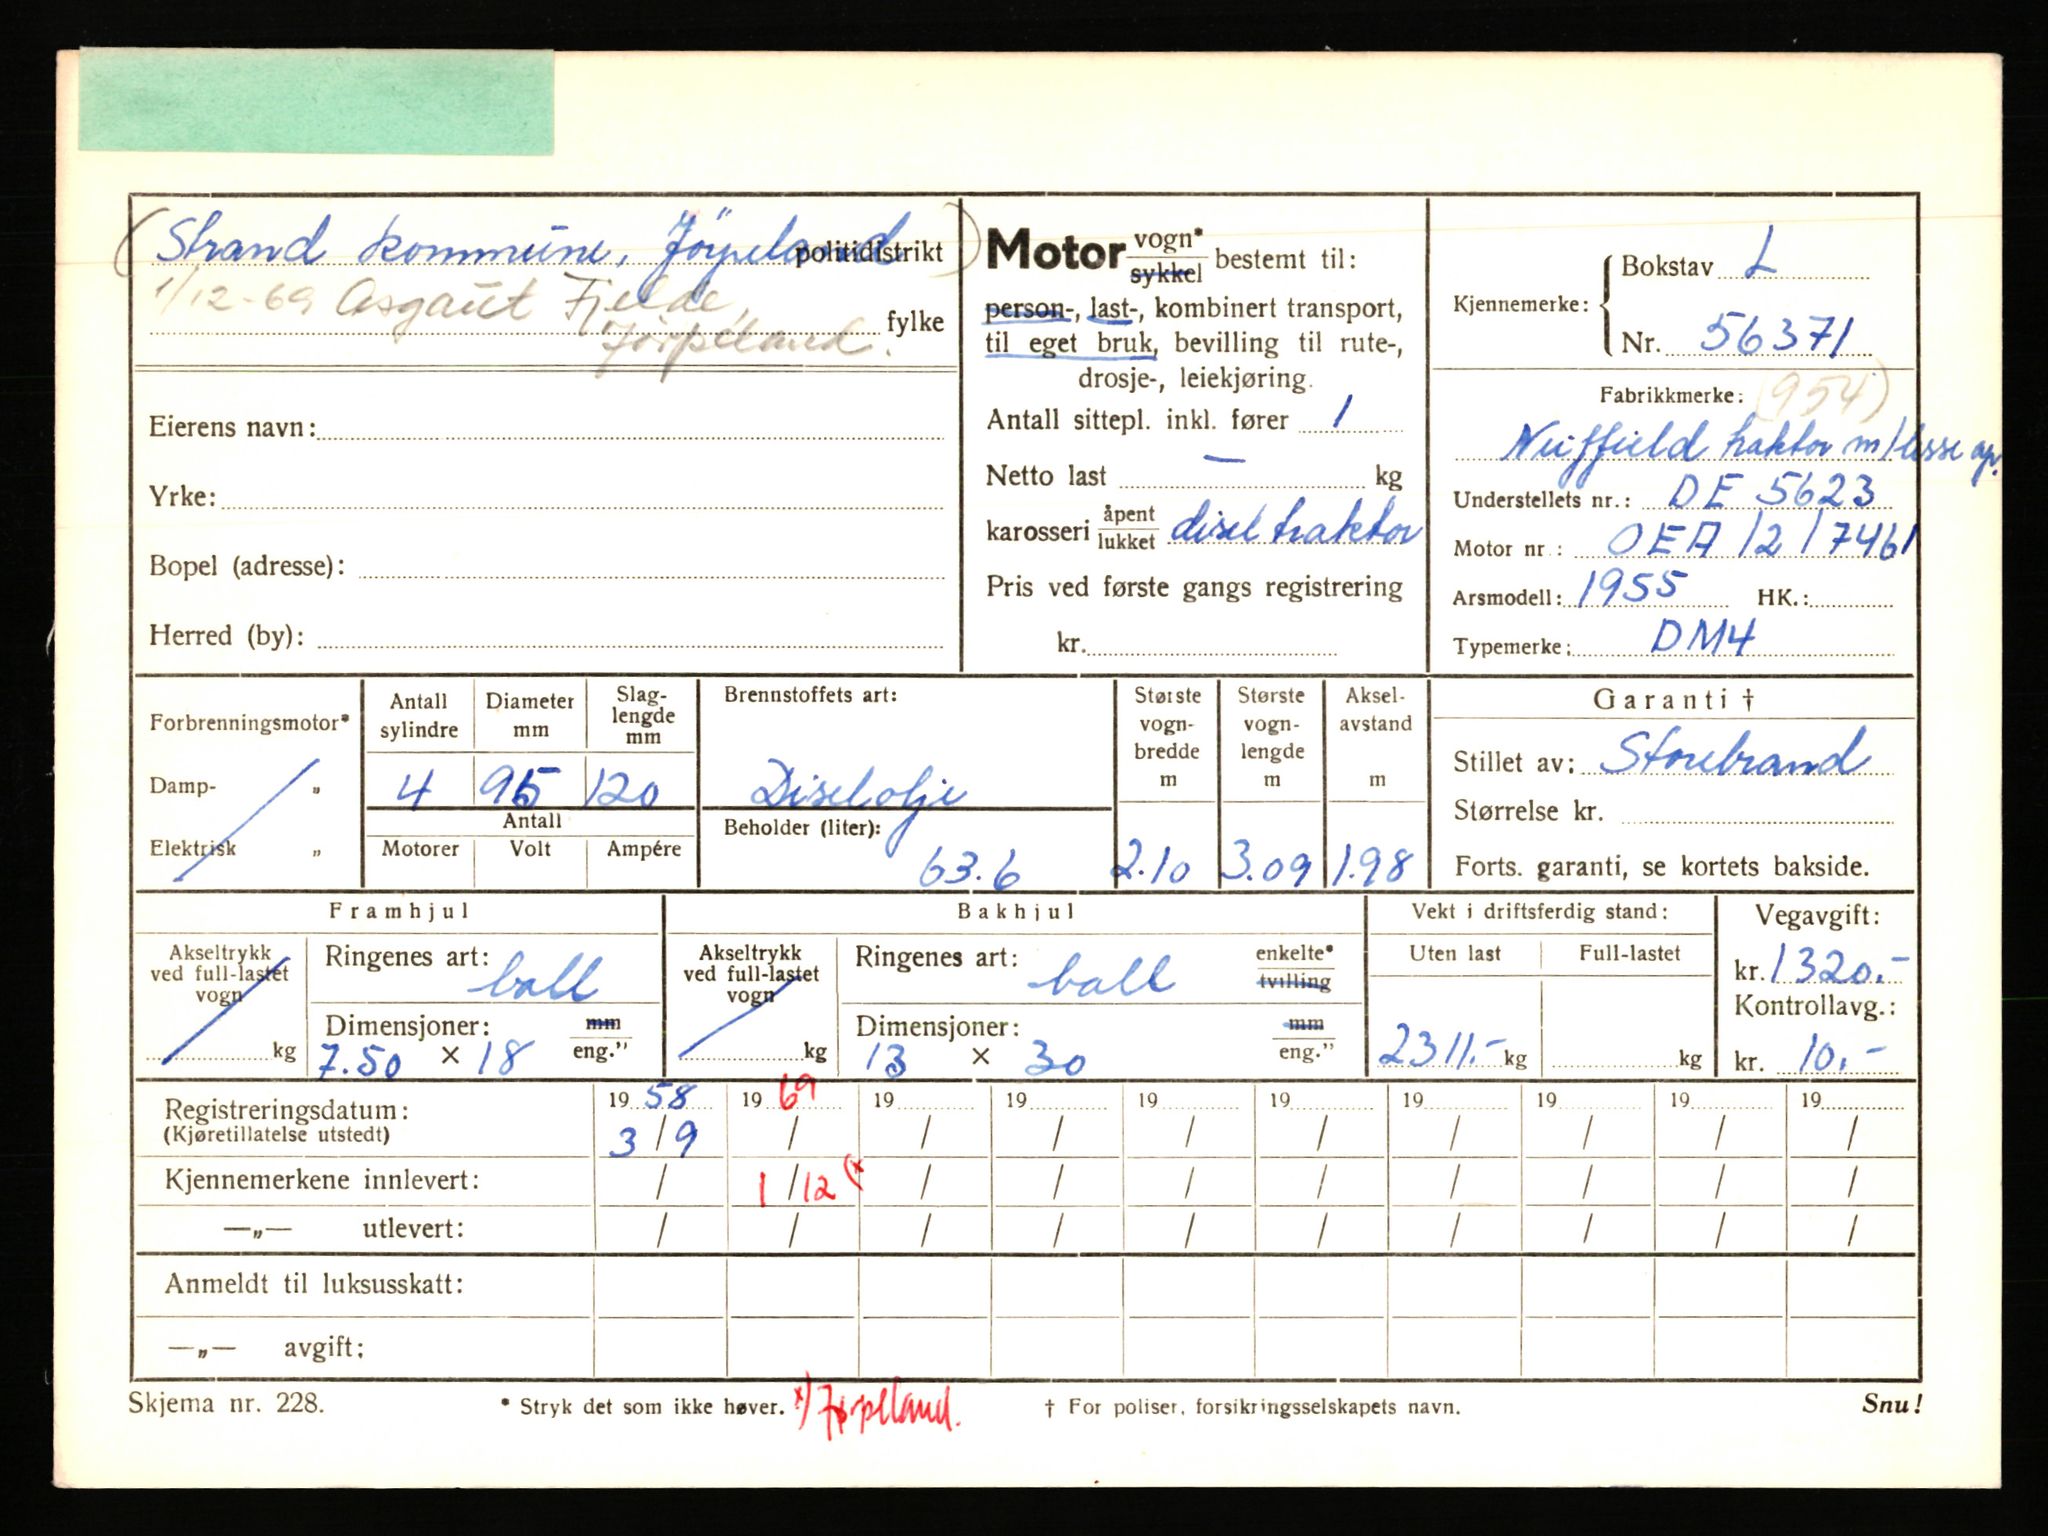 (Strand kommune, Jørpeland) politidistrikt
1/12-69 Asgaut Fjelde,
Jørpeland. fylke
Eierens navn:
Yrke:
Bopel (adresse):
Herred (by):
Motor vogn* / sykkel bestemt til:
person-, last-, kombinert transport,
til eget bruk, bevilling til rute-,
drosje-, leiekjøring.
Antall sittepl. inkl. fører 1
Netto last — kg
karosseri åpent / lukket disel traktor
Pris ved første gangs registrering
kr.
Kjennemerke: Bokstav L
Nr. 56371
Fabrikkmerke: (954)
Nuffield traktor m/lesse ap.
Understellets nr.: DE 5623
Motor nr.: OEA/2/7461
Arsmodell: 1955 HK.:
Typemerke: DM4
Forbrenningsmotor*
Damp- "
Elektrisk "
Antall sylindre Diameter mm Slag-lengde mm
4 95 120
Antall
Motorer Volt Ampére
Brennstoffets art:
Diselolje
Beholder (liter):
63.6
Største vogn-bredde m Største vogn-lengde m Aksel-avstand m
2.10 3.09 1.98
Garanti †
Stillet av: Storebrand
Størrelse kr.
Forts. garanti, se kortets bakside.
Framhjul
Akseltrykk ved full-lastet vogn kg
Ringenes art: ball
Dimensjoner: mm / eng."
7.50 × 18
Bakhjul
Akseltrykk ved full-lastet vogn kg
Ringenes art: ball enkelte* / tvilling
Dimensjoner: mm / eng."
13 × 30
Vekt i driftsferdig stand:
Uten last Full-lastet
2311.- kg kg
Vegavgift:
kr. 1320.-
Kontrollavg.:
kr. 10.-
Registreringsdatum: 19 58 19 69 19 19 19 19 19 19 19 19
(Kjøretillatelse utstedt) 3/9 / / / / / / / / /
Kjennemerkene innlevert: / 1/12 (* / / / / / / / /
—„— utlevert: / / / / / / / / / /
Anmeldt til luksusskatt:
—„— avgift:
Skjema nr. 228. * Stryk det som ikke høver. *) Jørpeland. † For poliser, forsikringsselskapets navn. Snu!